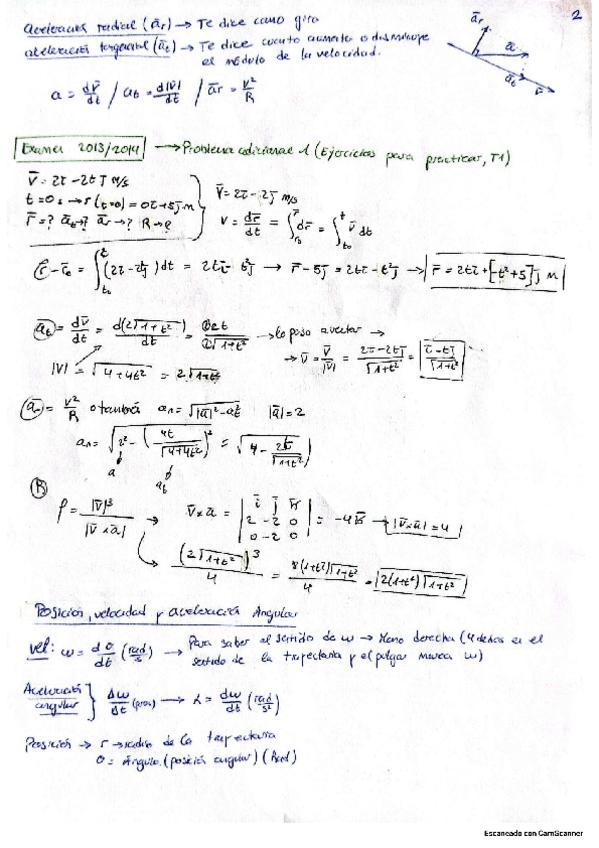 2
Aceleración radial (ār) → Te dice como gira
aceleración tangencial (āt) → Te dice cuanto aumenta o disminuye
el módulo de la velocidad.
a = dv̄/dt / at = d|v̄|/dt / ār = v²/R
ār
a
āt
Examen 2013/2014 → Problema adicional 1 (Ejercicios para practicar, T1)
v̄ = 2ī - 2tj̄ m/s
t = 0 s → r(t=0) = 0ī + 5j̄ m
r̄ = ? āt → ? ār → ? R → ?
v̄ = 2ī - 2j̄ m/s
v = dr̄/dt = ∫ dr̄ = ∫ v̄ dt
r̄ - r̄₀ = ∫ (2ī - 2tj̄) dt = 2tī - t²j̄ → r̄ - 5j̄ = 2tī - t²j̄ → r̄ = 2tī + [-t² + 5] j̄ m
āt = dv̄/dt = d(2√1+t²)/dt = 2·2t/2√1+t² → lo paso a vector →
→ v̄ = v̄/|v̄| = 2ī - 2tj̄/√1+t² = ī - tj̄/√1+t²
|v| = √4+4t² = 2√1+t²
ān = v²/R o también an = √|ā|² - at² |ā| = 2
an = √2² - (4t/√4+4t²)² = √4 - 2t/√1+t²
a
at
R
ρ = |v̄|³/|v̄ x ā| → v̄ x ā = | ī j̄ k̄ | = -4k̄ → |v̄ x ā| = 4
2 -2 0
0 -2 0
(2√1+t²)³/4 = 8(1+t²)√1+t²/4 = 2(1+t²)√1+t²
Posición, velocidad y aceleración Angular
vel: ω = dθ/dt (rad/s) → Para saber el sentido de ω → Mano derecha (4 dedos en el
sentido de la trayectoria y el pulgar marca ω)
Aceleración
angular } Δω/Δt → α = dω/dt (rad/s²)
Posición → r → radio de la trayectoria
θ = Ángulo (posición angular) (Rad)
Escaneado con CamScanner